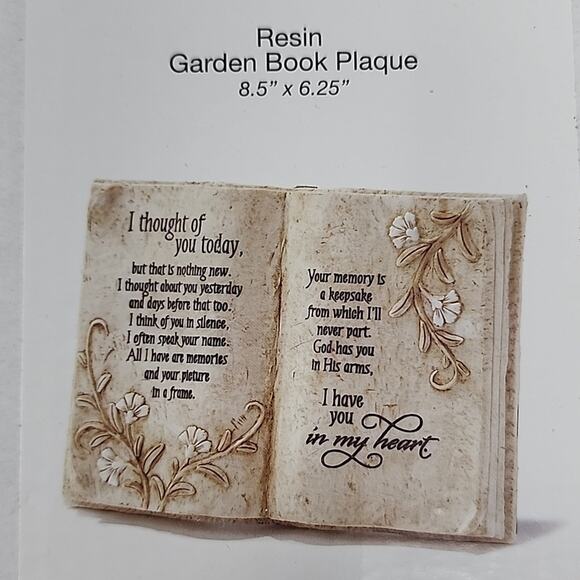 Resin
Garden Book Plaque
8.5” x 6.25”
I thought of
you today,
but that is nothing new.
I thought about you yesterday
and days before that too.
I think of you in silence,
I often speak your name.
All I have are memories
and your picture
in a frame.
Your memory is
a keepsake
from which I'll
never part.
God has you
in His arms,
I have
you
in my heart.